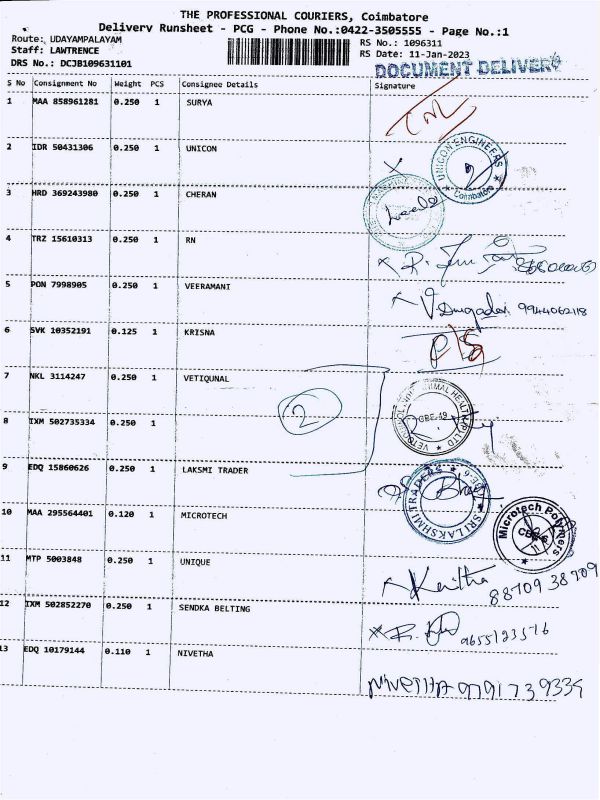 THE PROFESSIONAL COURIERS, Coimbatore
Delivery Runsheet - PCG - Phone No.:0422-3505555 - Page No.:1
Route: UDAYAMPALAYAM
RS No.: 1096311
Staff: LAWTRENCE
RS Date: 11-Jan-2023
DRS No.: DCJB109631101
DOCUMENT DELIVERY
S No Consignment No Weight PCS Consignee Details Signature
1 MAA 858961281 0.250 1 SURYA
2 IDR 50431306 0.250 1 UNICON
UNICON ENGINEERS
Coimbatore
3 HRD 369243980 0.250 1 CHERAN
4 TRZ 15610313 0.250 1 RN
5 PON 7998905 0.250 1 VEERAMANI
9944062118
6 SVK 10352191 0.125 1 KRISNA
7 NKL 3114247 0.250 1 VETIQUNAL
2
ANIMAL HEALTH (P) LTD
CBE-49
8 IXM 502735334 0.250 1
9 EDQ 15860626 0.250 1 LAKSMI TRADER
SRI LAKSHMI TRADERS
10 MAA 295564401 0.120 1 MICROTECH
Microtech Polymers
11 MTP 5003848 0.250 1 UNIQUE
Kavitha
88709 38709
12 IXM 502852270 0.250 1 SENDKA BELTING
9655123516
13 EDQ 10179144 0.110 1 NIVETHA
NIVETHA 9791739334